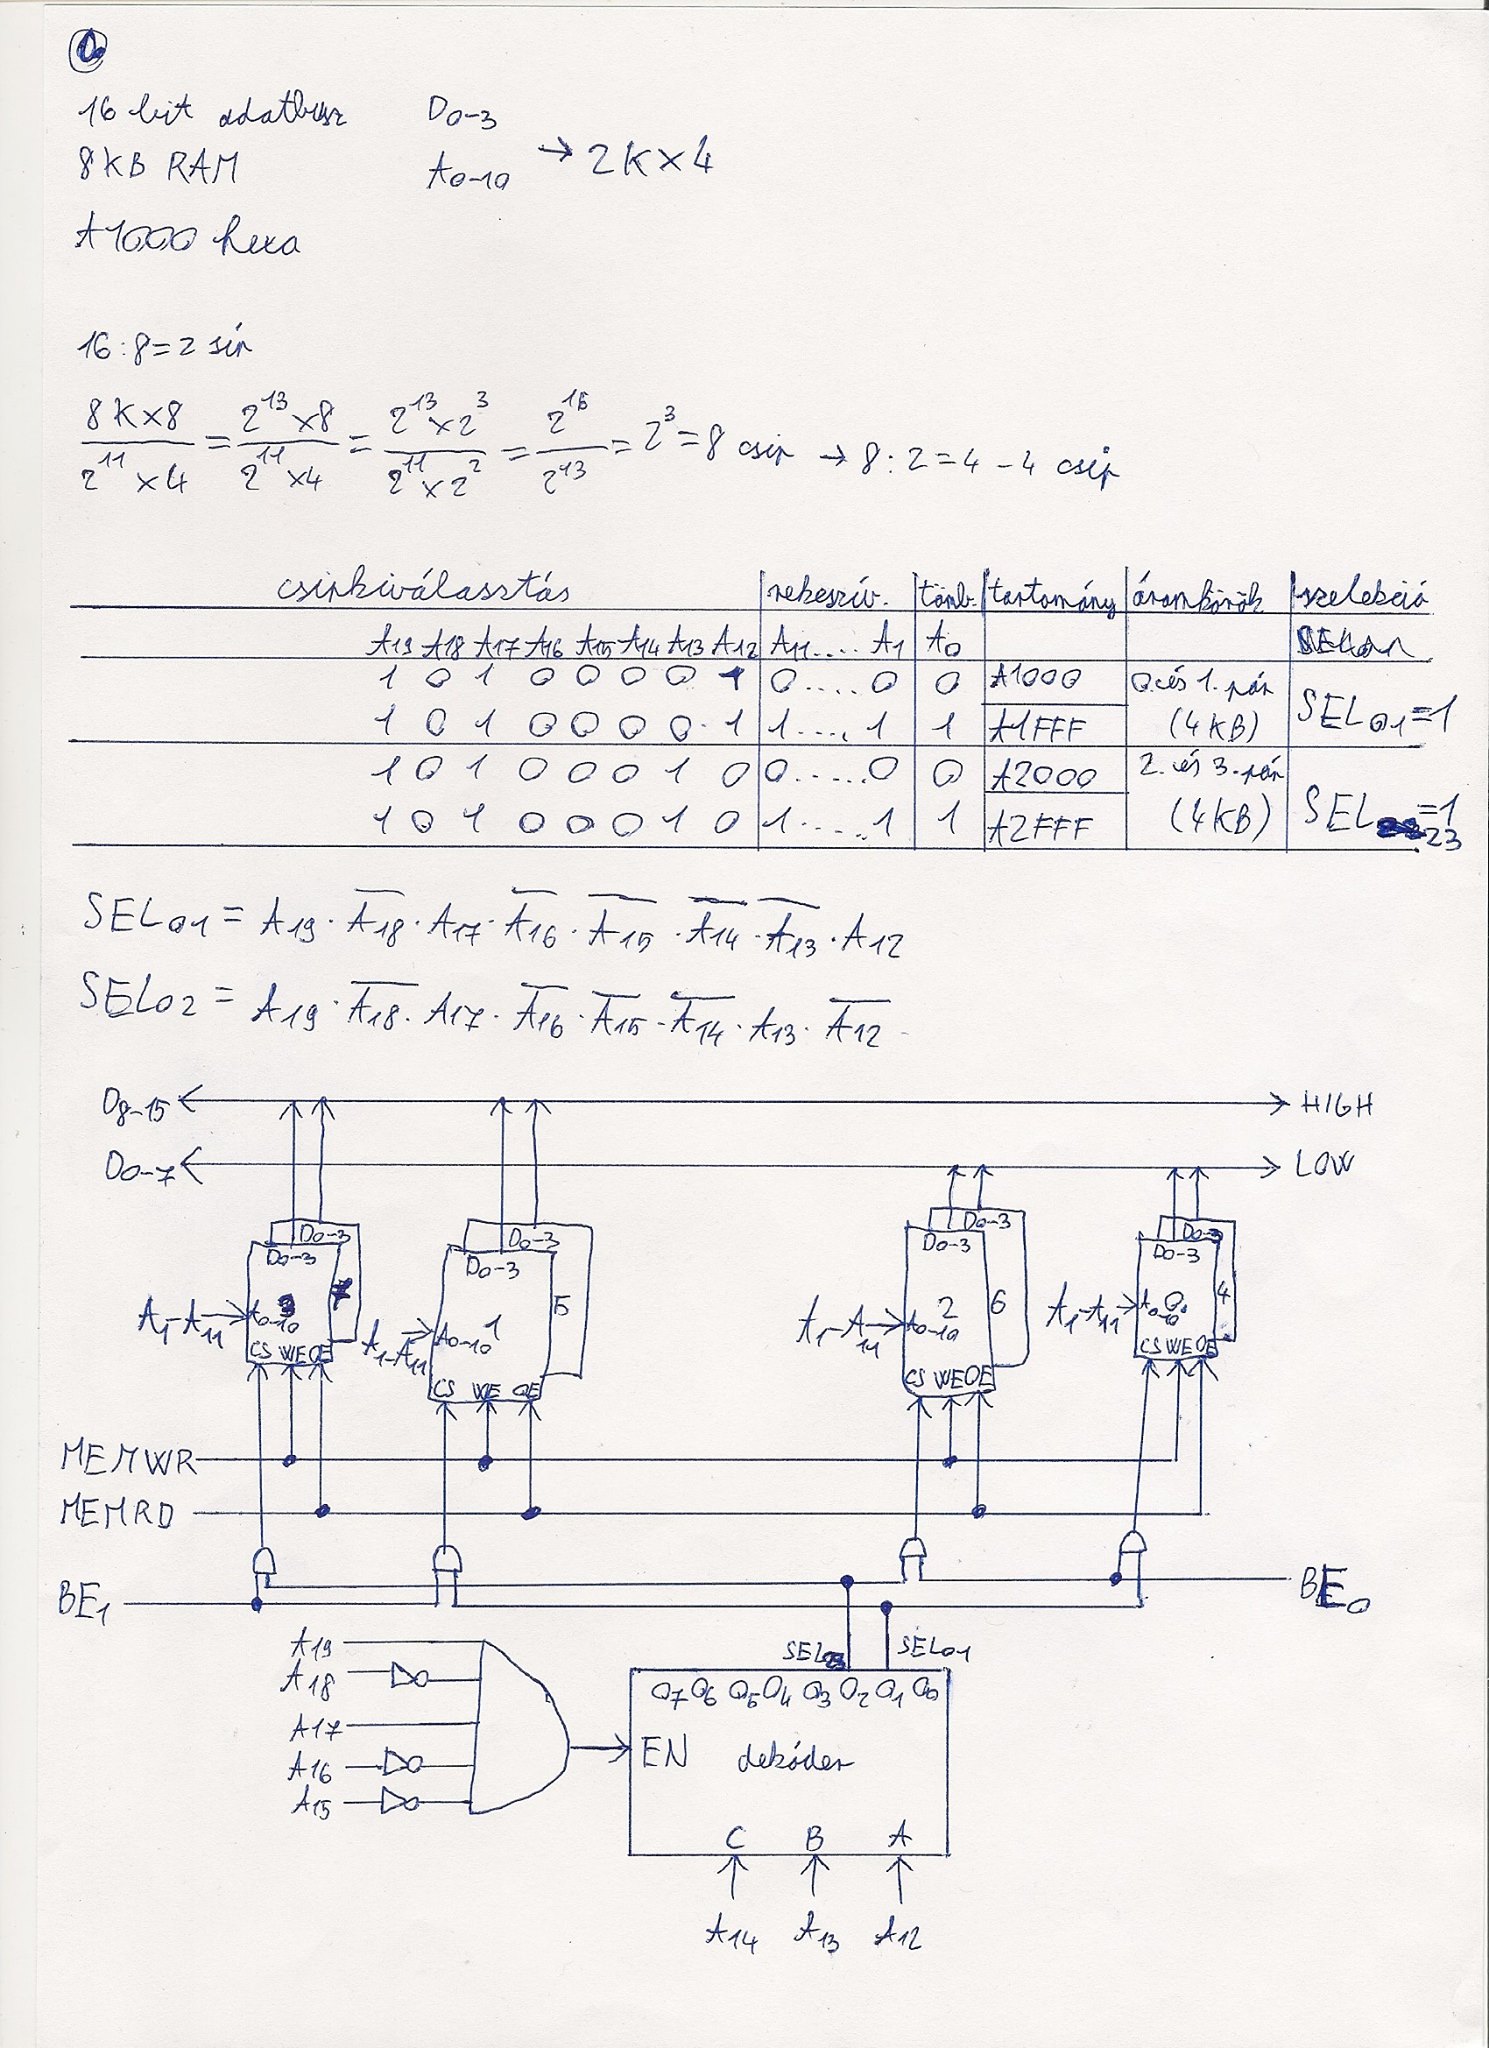 16 bit adatbusz D0-3
8KB RAM A0-10 → 2K×4
A1000 hexa
16:8=2 sín
8K×8 / 2^11 ×4 = 2^13 ×8 / 2^11 ×4 = 2^13 ×2^3 / 2^11 ×2^2 = 2^16 / 2^13 = 2^3 = 8 csip → 8:2=4-4 csip
csipkiválasztás rekeszív. tömb. tartomány áramkörök szelekció
A19 A18 A17 A16 A15 A14 A13 A12 A11.... A1 A0
1 0 1 0 0 0 0 1 0....0 0 A1000 0. és 1. pár SEL01=1
1 0 1 0 0 0 0 1 1....1 1 A1FFF (4KB)
1 0 1 0 0 0 1 0 0.....0 0 A2000 2. és 3. pár SEL23=1
1 0 1 0 0 0 1 0 1.....1 1 A2FFF (4KB)
SEL01 = A19 · A̅18 · A17 · A̅16 · A̅15 · A̅14 · A̅13 · A12
SEL02 = A19 · A̅18 · A17 · A̅16 · A̅15 · A̅14 · A13 · A̅12
D8-15 HIGH
D0-7 LOW
D0-3 D0-3 D0-3 D0-3
D0-3 D0-3 D0-3 D0-3
A1-A11 A0-10 3 7 A1-A11 A0-10 1 5 A1-A11 A0-10 2 6 A1-A11 A0-10 0. 4
CS WE OE CS WE OE CS WE OE CS WE OE
MEMWR
MEMRD
BE1 BE0
A19 SEL23 SEL01
A18
O7 O6 O5 O4 O3 O2 O1 O0
A17
EN dekóder
A16
A15
C B A
A14 A13 A12